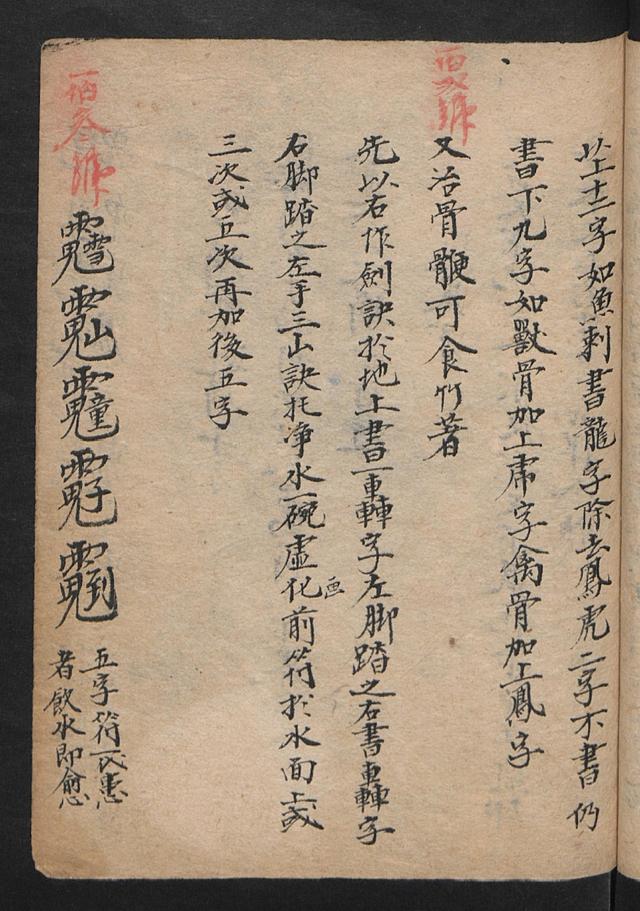 此上十二字如魚刺書龍字除去鳳虎二字不書仍
書下九字如獸骨加上虎字禽骨加上鳳字
又治骨骾可食竹著
先以右作劍訣於地上書一車轉字左脚踏之右書車轉字
右脚踏之左手三山訣托净水一碗虛化前符於水面上或
画
三次或五次再加後五字
五字符
者飲水即愈